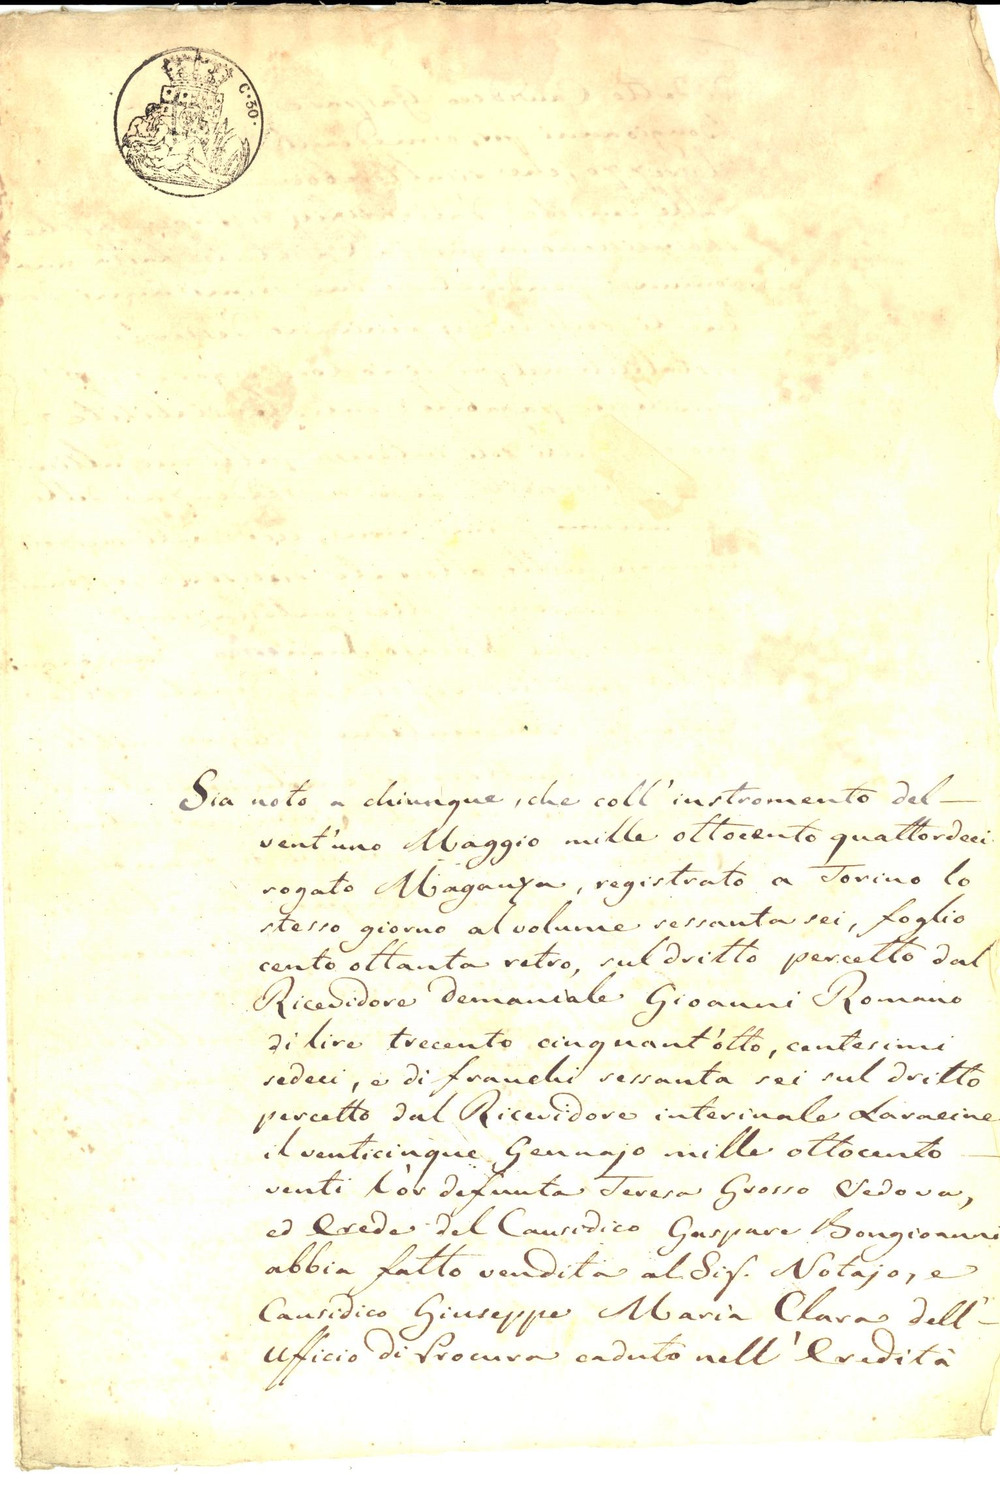 C. 30.
Sia noto a chiunque, che coll' instromento del—
vent'uno Maggio mille ottocento quattordeci
rogato Maganza, registrato a Torino lo
stesso giorno al volume sessanta sei, foglio
cento ottanta retro, sul dritto percetto dal
Ricevidore Demaniale Gioanni Romano
di lire trecento cinquant'otto, centesimi
sedeci, e di franchi sessanta sei sul dritto
percetto dal Ricevidore interinale Laracine
il venticinque Gennajo mille ottocento —
venti l'or defunta Teresa Grosso Vedova,
ed Erede del Causidico Gaspare Bongioanni
abbia fatto vendita al Sig. Notajo, e
Causidico Giuseppe Maria Clara dell'—
Ufficio di Procura caduto nell' Eredità